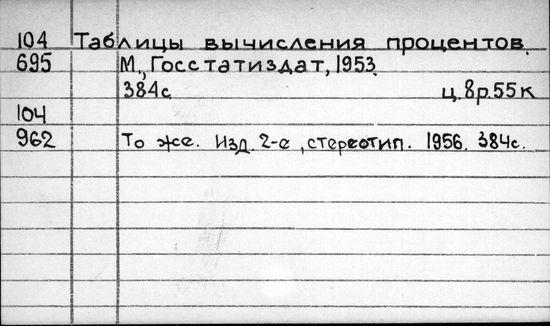 104 Таблицы вычисления процентов.
695 М., Госстатиздат, 1953.
384с ц. 8р.55к
104
962 То же. Изд. 2-е, стереотип. 1956. 384с.